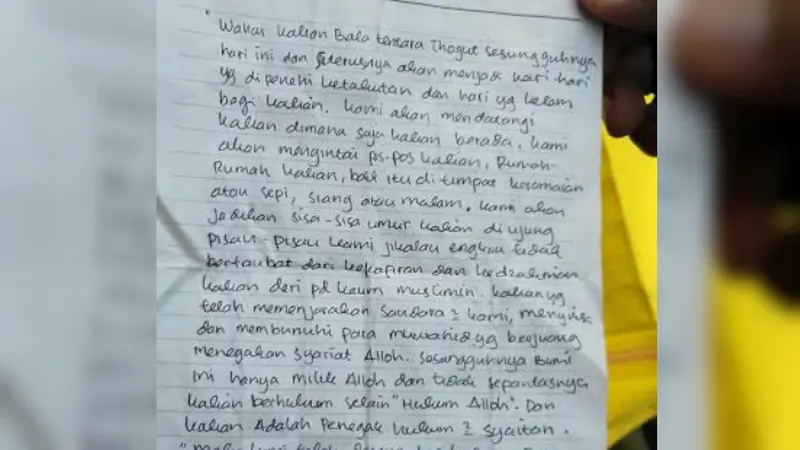 " Wahai kalian Bala tentara Thogut sesungguhnya
hari ini dan seterusnya akan menjadi hari-hari
yg dipenuhi ketakutan dan hari yg kelam
bagi kalian. kami akan mendatangi
kalian dimana saja kalian berada, kami
akan mengintai pos-pos kalian, Rumah-
Rumah kalian, baik itu di tempat keramaian
atau sepi, siang atau malam. kami akan
jadikan sisa-sisa umur kalian di ujung
pisau-pisau kami jikalau engkau tidak
bertaubat dari kekafiran dan kedzaliman
kalian dari pd kaum muslimin. kalian yg
telah memenjarakan saudara2 kami, menyiksa
dan membunuhi para muwahid yg berjuang
menegakan syariat Alloh. sesungguhnya Bumi
ini hanya milik Alloh dan tidak sepantasnya
kalian berhukum selain "Hukum Alloh". Dan
kalian Adalah Penegak hukum2 syaitan.